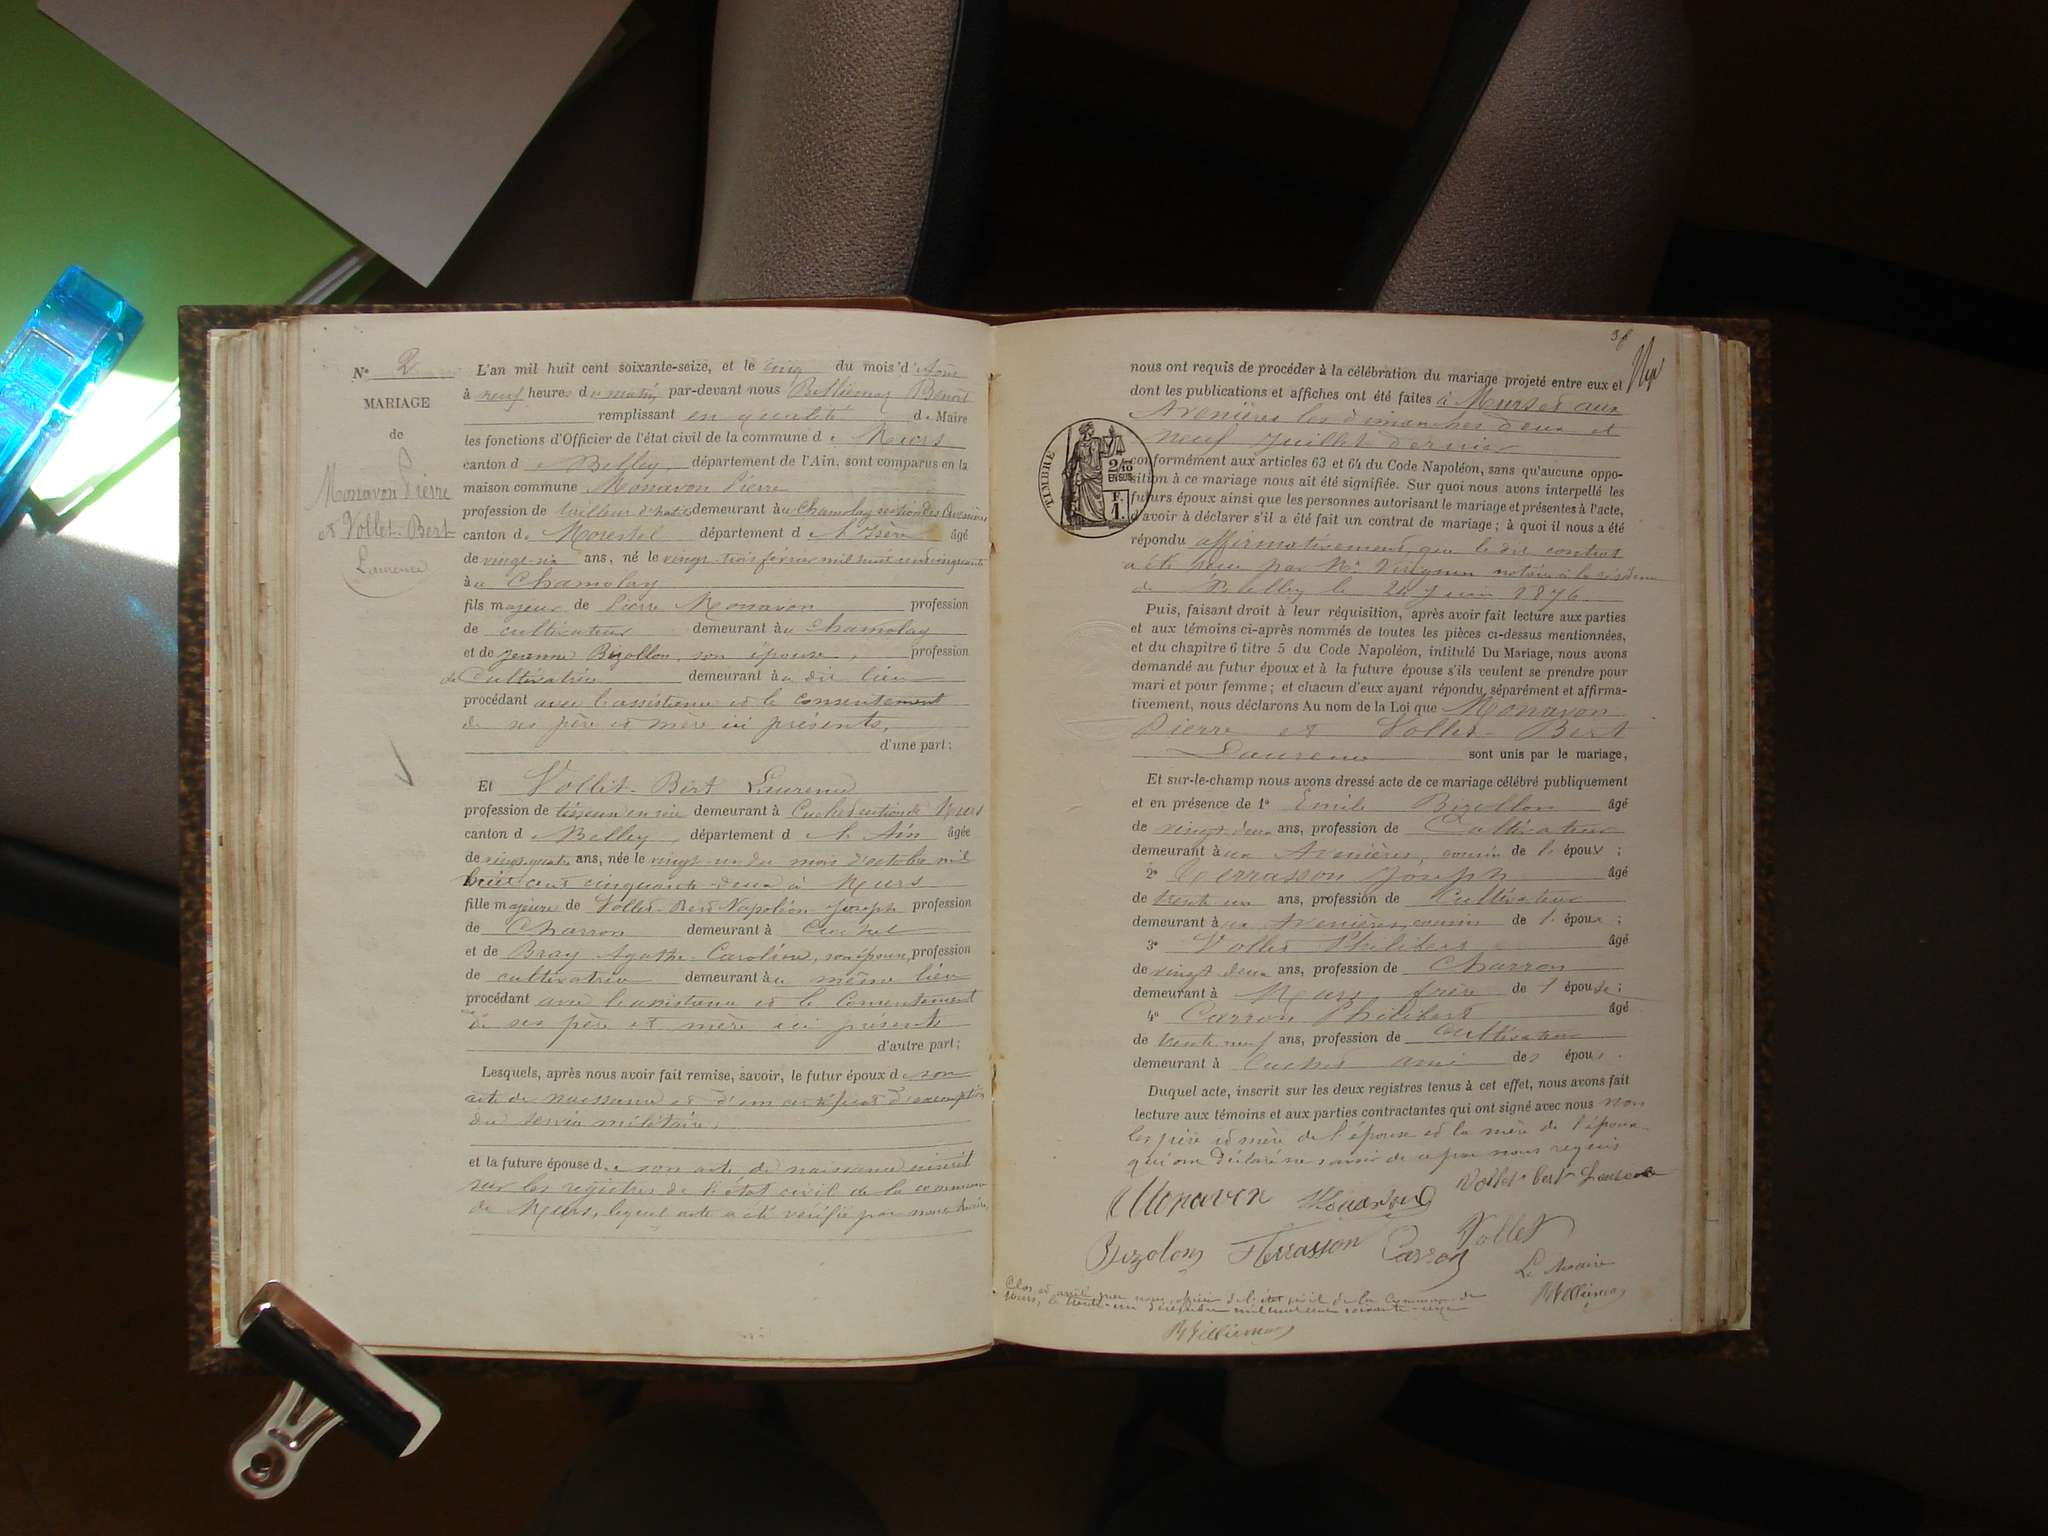 Nº 2
MARIAGE
de
Monavon Pierre
et Vollet-Bert
Laurence
L'an mil huit cent soixante-seize, et le cinq du mois d'Août
à neuf heures du matin par-devant nous Billiemaz Benoit
remplissant en qualité de Maire
les fonctions d'Officier de l'état civil de la commune de Murs
canton de Belley, département de l'Ain, sont comparus en la
maison commune Monavon Pierre
profession de tailleur d'habits demeurant à Chamolay section des Avenières
canton de Morestel département de l'Isère âgé
de vingt-six ans, né le vingt-trois février mil huit cent cinquante
à Chamolay
fils majeur de Pierre Monavon profession
de cultivateur demeurant à Chamolay
et de Jeanne Bizollon, son épouse, profession
de Cultivatrice demeurant au dit lieu
procédant avec l'assistance et le consentement
de ses père et mère ici présents,
d'une part;
Et Vollet-Bert Laurence
profession de tisseuse en soie demeurant à Cuchet section de Murs
canton de Belley, département de l'Ain âgée
de vingt-quatre ans, née le vingt-un du mois d'octobre mil
huit cent cinquante-deux à Murs
fille majeure de Vollet-Bert Napoléon Joseph profession
de Charron demeurant à Cuchet
et de Bray Agathe Caroline, son épouse, profession
de cultivatrice demeurant au même lieu
procédant avec l'assistance et le Consentement
de ses père et mère ici présents
d'autre part;
Lesquels, après nous avoir fait remise, savoir, le futur époux de son
acte de naissance et d'un certificat d'exemption
du service militaire,
et la future épouse de son acte de naissance inscrit
sur les registres de l'état civil de la commune
de Murs, lequel acte a été vérifié par nous
nous ont requis de procéder à la célébration du mariage projeté entre eux et
dont les publications et affiches ont été faites à Murs et aux
Avenières les dimanches deux et
neuf Juillet dernier
TIMBRE
2/10
EN SUS
F.
1.
conformément aux articles 63 et 64 du Code Napoléon, sans qu'aucune oppo-
sition à ce mariage nous ait été signifiée. Sur quoi nous avons interpellé les
futurs époux ainsi que les personnes autorisant le mariage et présentes à l'acte,
d'avoir à déclarer s'il a été fait un contrat de mariage; à quoi il nous a été
répondu affirmativement, que le dit contrat
a été reçu par Me notaire à la résidence
de Belley le 24 Juin 1876
Puis, faisant droit à leur réquisition, après avoir fait lecture aux parties
et aux témoins ci-après nommés de toutes les pièces ci-dessus mentionnées,
et du chapitre 6 titre 5 du Code Napoléon, intitulé Du Mariage, nous avons
demandé au futur époux et à la future épouse s'ils veulent se prendre pour
mari et pour femme; et chacun d'eux ayant répondu séparément et affirma-
tivement, nous déclarons Au nom de la Loi que Monavon
Pierre et Vollet-Bert
Laurence sont unis par le mariage,
Et sur-le-champ nous avons dressé acte de ce mariage célébré publiquement
et en présence de 1º Emile Bizollon âgé
de vingt-deux ans, profession de Cultivateur
demeurant aux Avenières, cousin de l'époux;
2º Terrasson Joseph âgé
de trente un ans, profession de Cultivateur
demeurant aux Avenières, cousin de l'époux;
3º Vollet Philibert âgé
de vingt-deux ans, profession de Charron
demeurant à Murs frère de l'épouse;
4º Carron Philibert âgé
de trente neuf ans, profession de Cultivateur
demeurant à Cuchet ami des époux.
Duquel acte, inscrit sur les deux registres tenus à cet effet, nous avons fait
lecture aux témoins et aux parties contractantes qui ont signé avec nous non
les père et mère de l'épouse et la mère de l'époux
qui ont déclaré ne savoir de ce par nous requis
Monavon Monavon Vollet-bert Laurence
Bizolon J Terrasson Carron Vollet
Le Maire
Billiemaz
Clos et arrêté par nous, officier de l'état civil de la Commune de
Murs, le trente-un décembre mil huit cent soixante-seize
Billiemaz